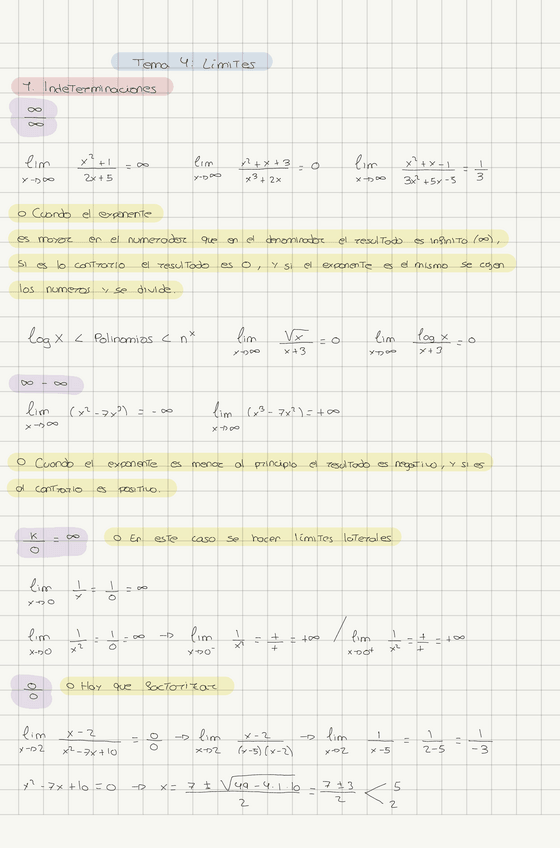 Tema 4: Límites
1. Indeterminaciones
∞/∞
lim x→∞ (x²+1)/(2x+5) = ∞   lim x→∞ (x²+x+3)/(x³+2x) = 0   lim x→∞ (x²+x-1)/(3x²+5x-3) = 1/3
o Cuando el exponente
es mayor en el numerador que en el denominador el resultado es infinito (∞),
si es lo contrario el resultado es 0, y si el exponente es el mismo se cojen
los numeros y se divide.
log x < Polinomios < n^x   lim x→∞ √x/(x+3) = 0   lim x→∞ log x/(x+3) = 0
∞ - ∞
lim x→∞ (x²-7x³) = -∞   lim x→∞ (x³-7x²) = +∞
o Cuando el exponente es menor al principio el resultado es negativo, y si es
al contrario es positivo.
K/0 = ∞   o En este caso se hacer límites laterales
lim x→0 1/x = 1/0 = ∞
lim x→0 1/x² = 1/0 = ∞ → lim x→0⁻ 1/x² = +/+ = +∞ / lim x→0⁺ 1/x² = +/+ = +∞
0/0   o Hay que factorizar
lim x→2 (x-2)/(x²-7x+10) = 0/0 → lim x→2 (x-2)/((x-5)(x-2)) → lim x→2 1/(x-5) = 1/(2-5) = 1/-3
x²-7x+10=0 → x = (7 ± √(49-4·1·10))/2 = (7±3)/2 < 5
2